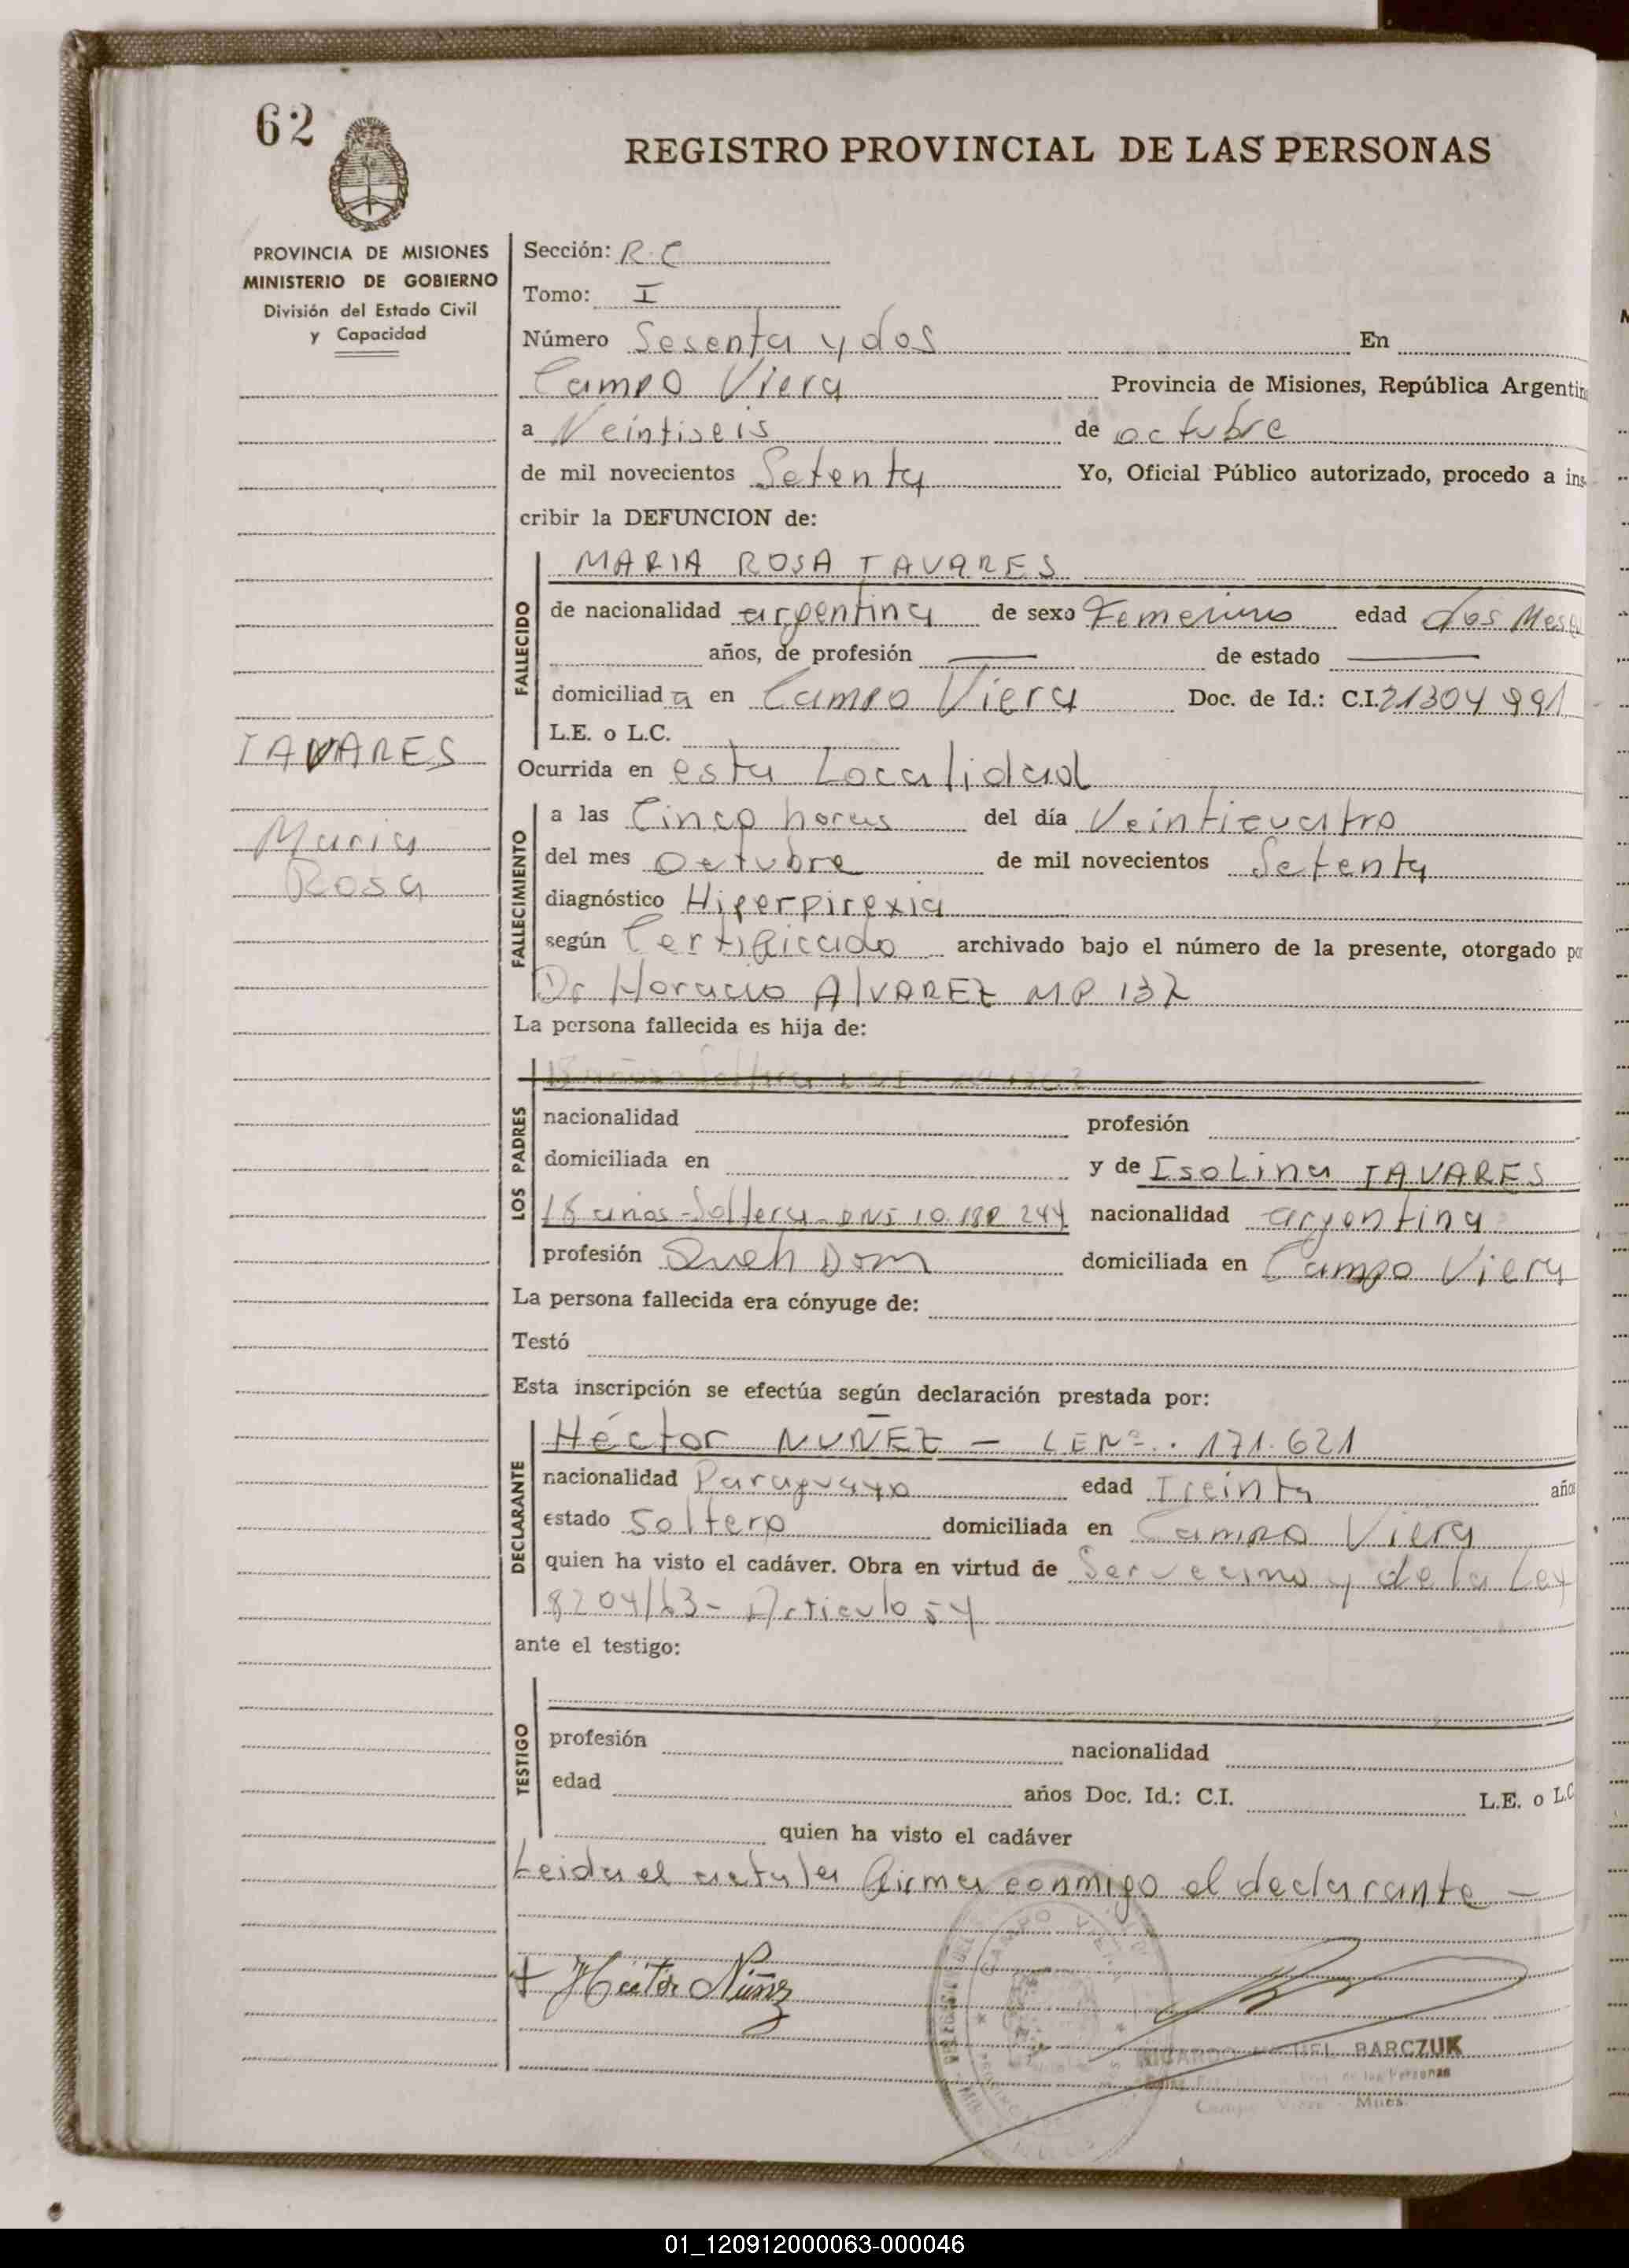 62
REGISTRO PROVINCIAL DE LAS PERSONAS
PROVINCIA DE MISIONES
MINISTERIO DE GOBIERNO
División del Estado Civil
y Capacidad
Sección: R.C
Tomo: I
Número Sesenta y dos En
Campo Viera Provincia de Misiones, República Argentin
a Veintiseis de octubre
de mil novecientos Setenta Yo, Oficial Público autorizado, procedo a ins-
cribir la DEFUNCION de:
FALLECIDO
MARIA ROSA TAVARES
de nacionalidad argentina de sexo Femenino edad dos Mese
años, de profesión — de estado —
domiciliad a en Campo Viera Doc. de Id.: C.I. 21304991
L.E. o L.C.
TAVARES
Maria
Rosa
Ocurrida en esta Localidad
FALLECIMIENTO
a las Cinco horas del día Veinticuatro
del mes Octubre de mil novecientos Setenta
diagnóstico Hiperpirexia
según Certificado archivado bajo el número de la presente, otorgado po
Dr Horacio ALVAREZ MP 137
La persona fallecida es hija de:
LOS PADRES
nacionalidad profesión
domiciliada en y de Isolina TAVARES
18 años-Soltera-DNI 10.180 244 nacionalidad argentina
profesión Queh Dom domiciliada en Campo Viera
La persona fallecida era cónyuge de:
Testó
Esta inscripción se efectúa según declaración prestada por:
DECLARANTE
Héctor NUÑEZ - LE Nº. 171.621
nacionalidad Paraguayo edad Treinta año
estado Soltero domiciliada en Campo Viera
quien ha visto el cadáver. Obra en virtud de y de la Ley
8204/63- Articulo 54
ante el testigo:
TESTIGO
profesión nacionalidad
edad años Doc. Id.: C.I. L.E. o L.C
quien ha visto el cadáver
Leida el acta la firma conmigo el declarante -
+ Héctor Núñez
RICARDO MIGUEL BARCZUK
de las Personas
Campo Viera - Mnes.
01_120912000063-000046